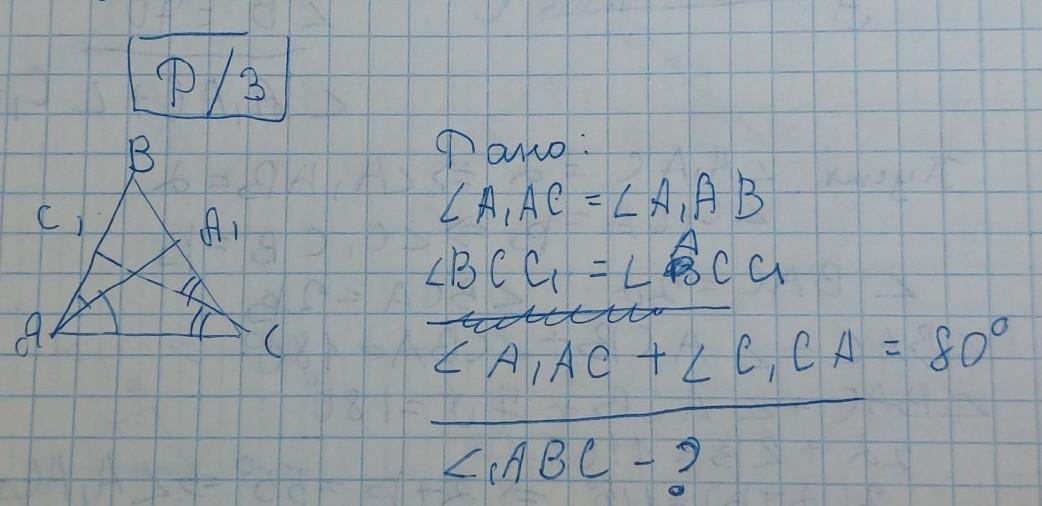 Д/З
B
C₁
A₁
A
C
Дано:
∠A₁AC = ∠A₁AB
∠BCC₁ = ∠ACC₁
∠A₁AC + ∠C₁CA = 80°
∠ABC - ?